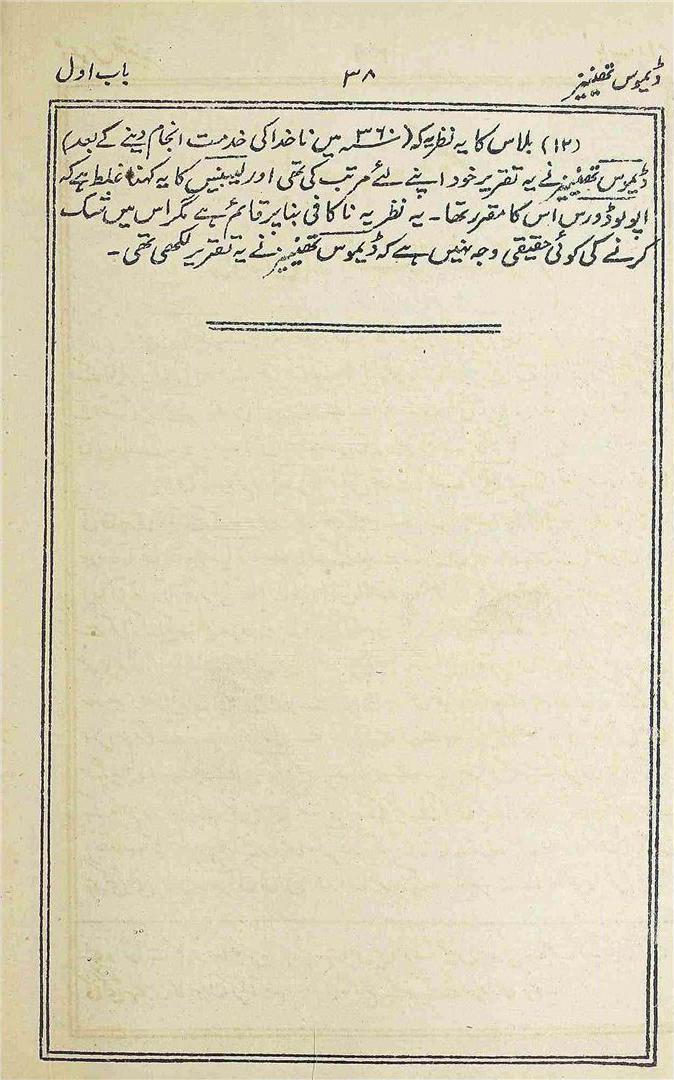 ڈیموس تھینیز ۳۸ باب اول
(۱۲) بلاس کا یہ نظریہ کہ (۳۶۰؁ میں ناخدا کی خدمت انجام دینے کے بعد)
ڈیموس تھینیز نے یہ تقریر خود اپنے لئے مرتب کی تھی اور لیبنیس کا یہ کہنا غلط ہے کہ
اپولوڈورس اس کا مقرر تھا۔ یہ نظریہ ناکافی بنا پر قائم ہے مگر اس میں شک
کرنے کی کوئی حقیقی وجہ نہیں ہے کہ ڈیموس تھینیز نے یہ تقریر لکھی تھی۔